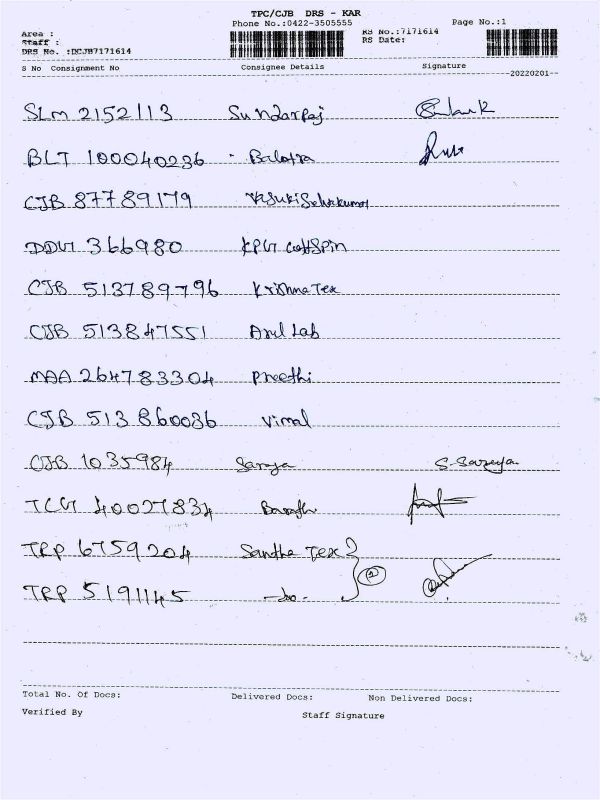 TPC/CJB DRS - KAR
Phone No.:0422-3505555
Page No.:1
Area :
Staff :
DRS No. :DCJB7171614
RS No.:7171614
RS Date:
S No Consignment No Consignee Details Signature
20220201
SLM 2152113 Sundarraj
BLT 100040236 Balotra
CJB 87789179
DDG 366980 KPG CottSpin
CJB 513789796 Krishna Tex
CJB 513847551 Arul Lab
MAA 264783304 Preethi
CJB 513860036 Vimal
CJB 1035984 Saroja
TCG 40027834 Barath
TRP 6759204 Santha Tex
TRP 5191145 -do- 2
Total No. Of Docs: Delivered Docs: Non Delivered Docs:
Verified By Staff Signature